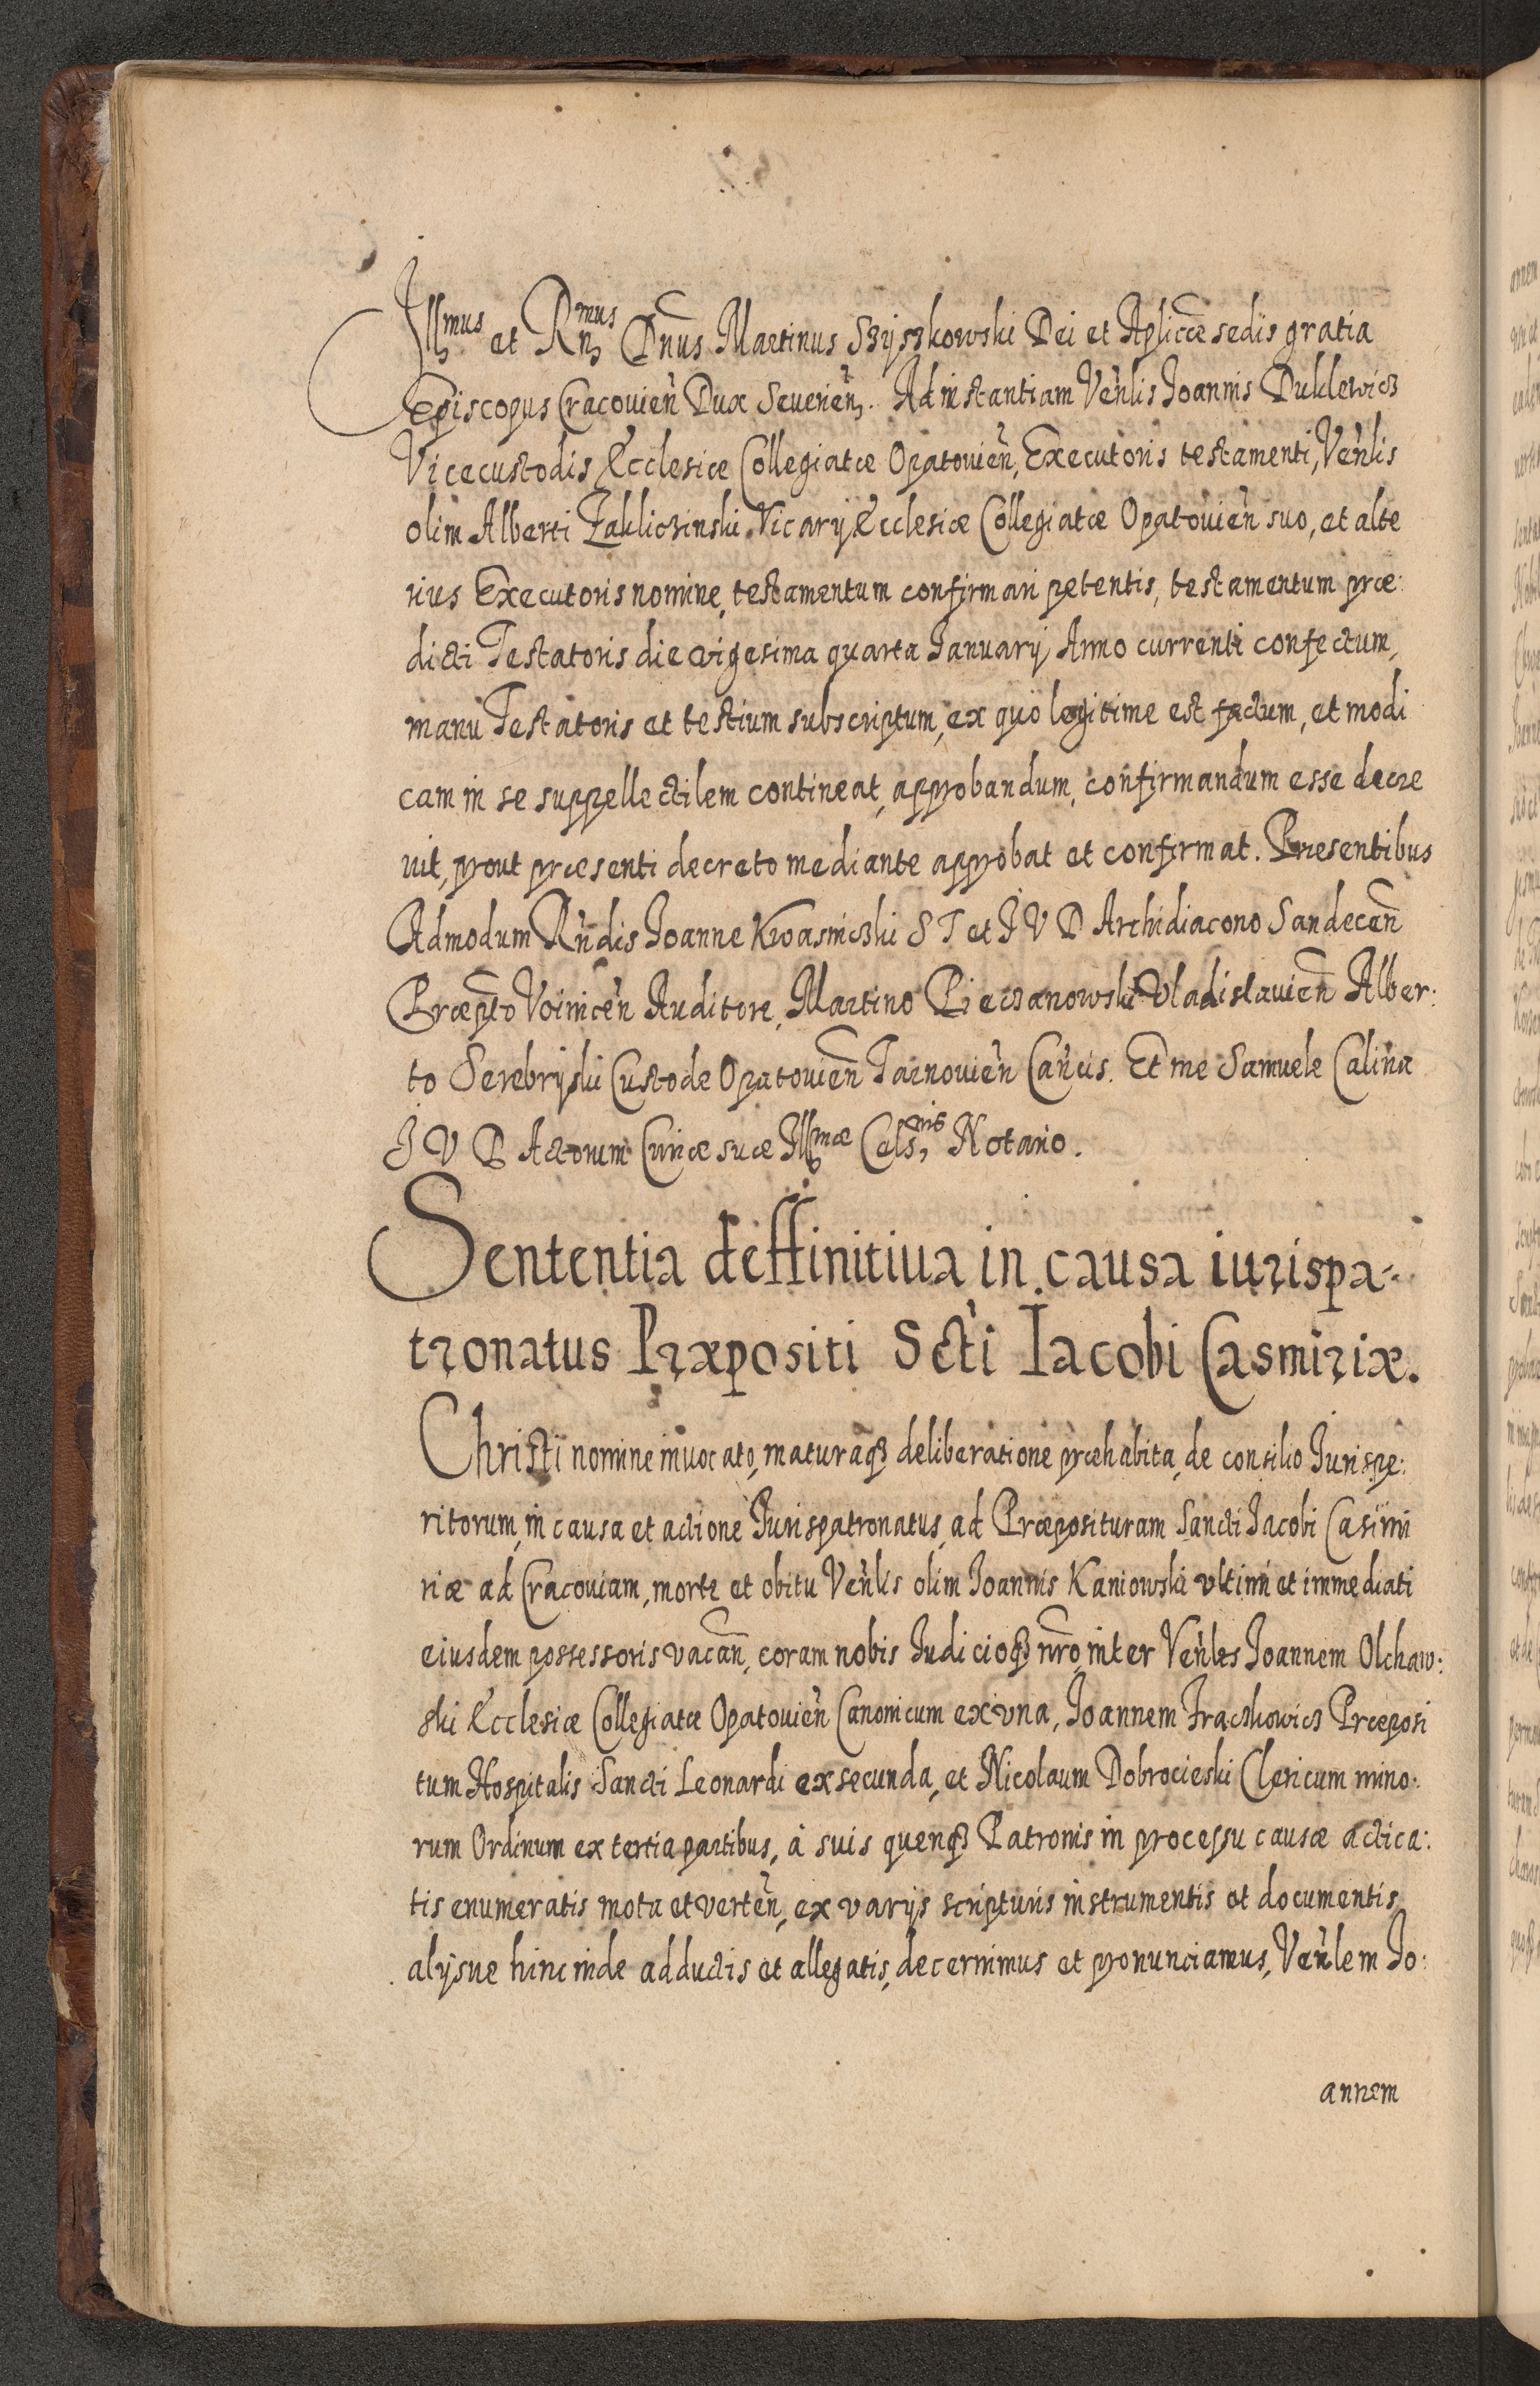 Illmus et Rnmus Dnus Martinus Szyszkowski Dei et Aplicæ sedis gratia
Episcopus Cracouien Dux Seuerien. Ad instantiam Venlis Joannis Duklewicz
Vicecustodis Ecclesiæ Collegiatæ Opatouien, Executoris testamenti, Venlis
olim Alberti Zakliczinski Vicarij Ecclesiæ Collegiatæ Opatouien suo, et alte
rius Executoris nomine, testamentum confirmari petentis, testamentum præ:
dicti Testatoris die vigesima quarta January Anno currenti confectum,
manu Testatoris et testium subscriptum, ex quo legitime est factum, et modi
cam in se suppellectilem contineat, approbandum, confirmandum esse decre
uit, prout præsenti decreto mediante approbat et confirmat. Præsentibus
Admodum Rndis Joanne Kwasniczki S T et J V D Archidiacono Sandecen
Præpto Voinicen Auditore, Martino Pieczanowski Vladislauien Alber:
to Serebryski Custode Opatouien Tarnouien Cancis. Et me Samuele Calina
J V D Actorum Curiæ suæ Illmæ Celsnis Notario.
Sententia deffinitiua in causa iurispa-
tronatus Præpositi Scti Iacobi Casmiriæ.
Christi nomine inuocato, maturaq3 deliberatione præhabita, de consilio Jurispe:
ritorum, in causa et actione Jurispatronatus, ad Præposituram Sancti Jacobi Casimi
riæ ad Cracouiam, morte et obitu Venlis olim Joannis Kaniowski vltimi et immediati
eiusdem possessoris vacan, coram nobis Judicioq3 nro, inter Venles Joannem Olchaw:
ski Ecclesiæ Collegiatæ Opatouien Canonicum ex vna, Joannem Frączkowicz Præposi
tum Hospitalis Sancti Leonardi ex secunda, et Nicolaum Dobrocieski Clericum mino:
rum Ordinum ex tertia partibus, à suis quenq3 Patronis in processu causæ actica:
tis enumeratis mota et verten, ex varijs scripturis instrumentis et documentis
alijsue hincinde adductis et allegatis, decernimus et pronunciamus, Venlem Jo:
annem